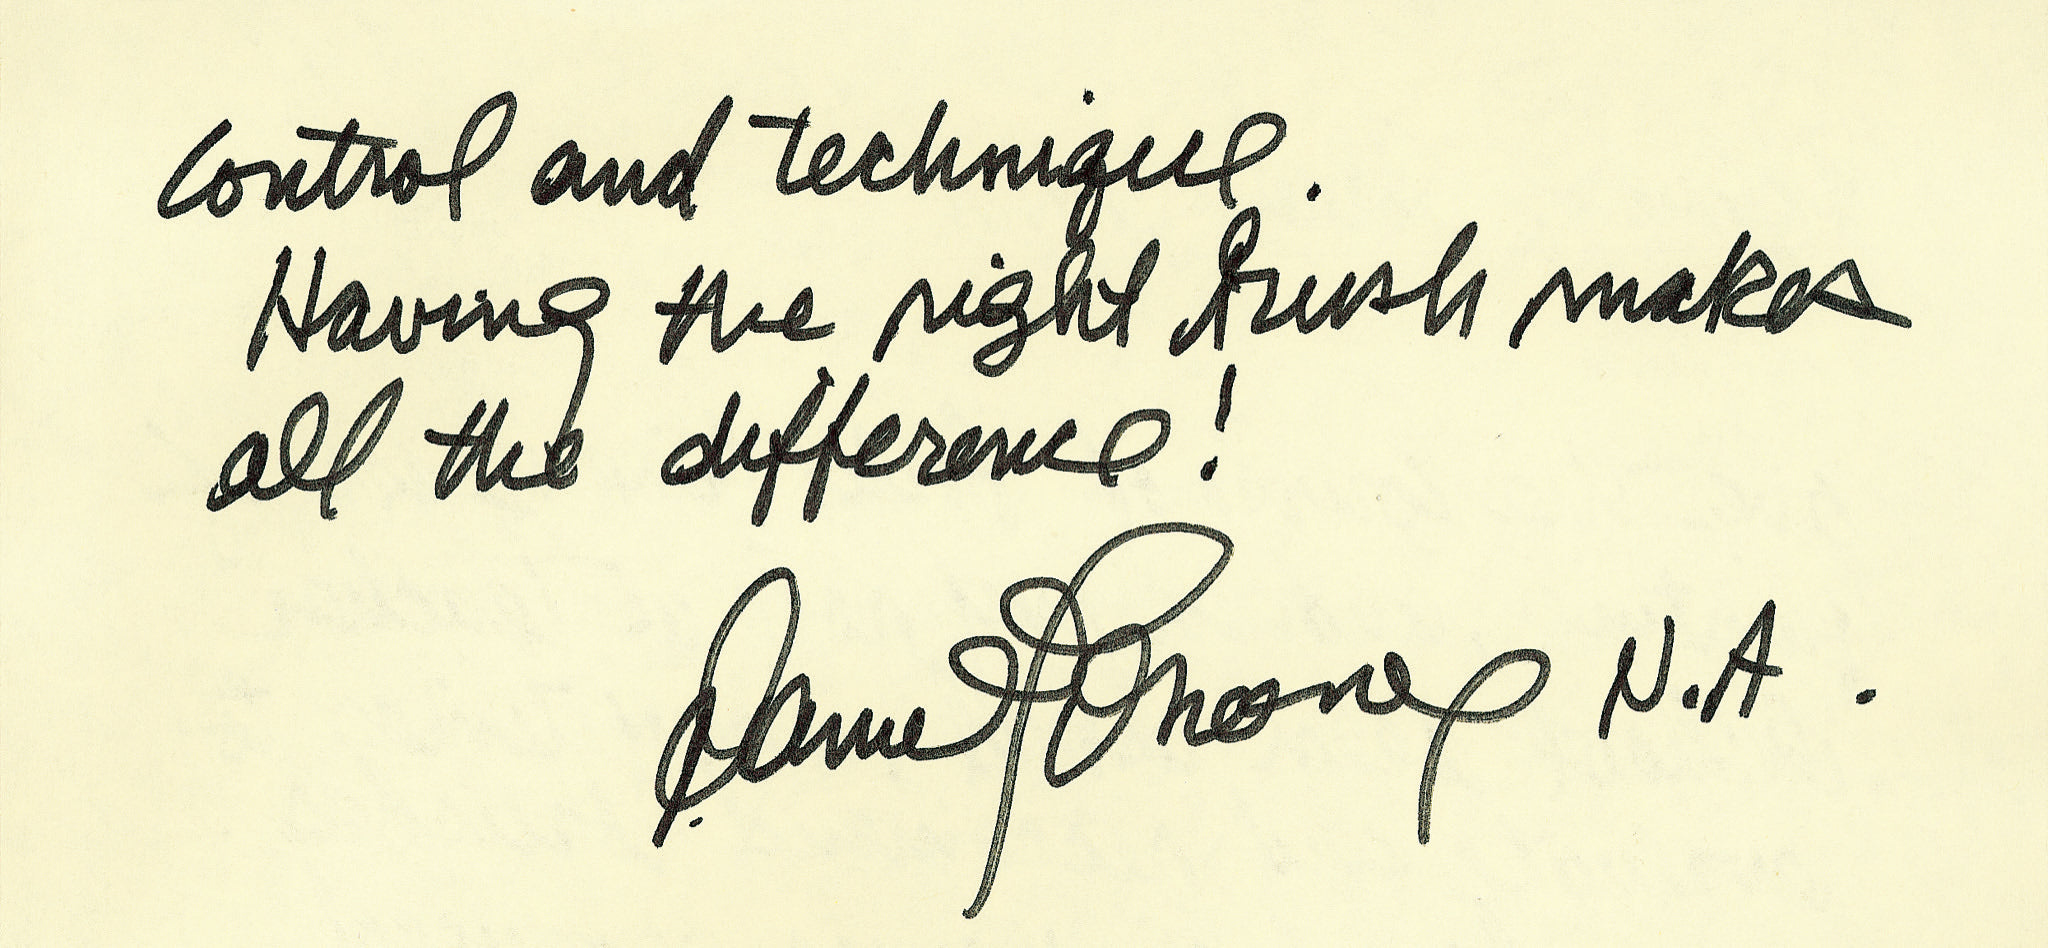 control and technique.
Having the right brush makes
all the difference!
N.A.